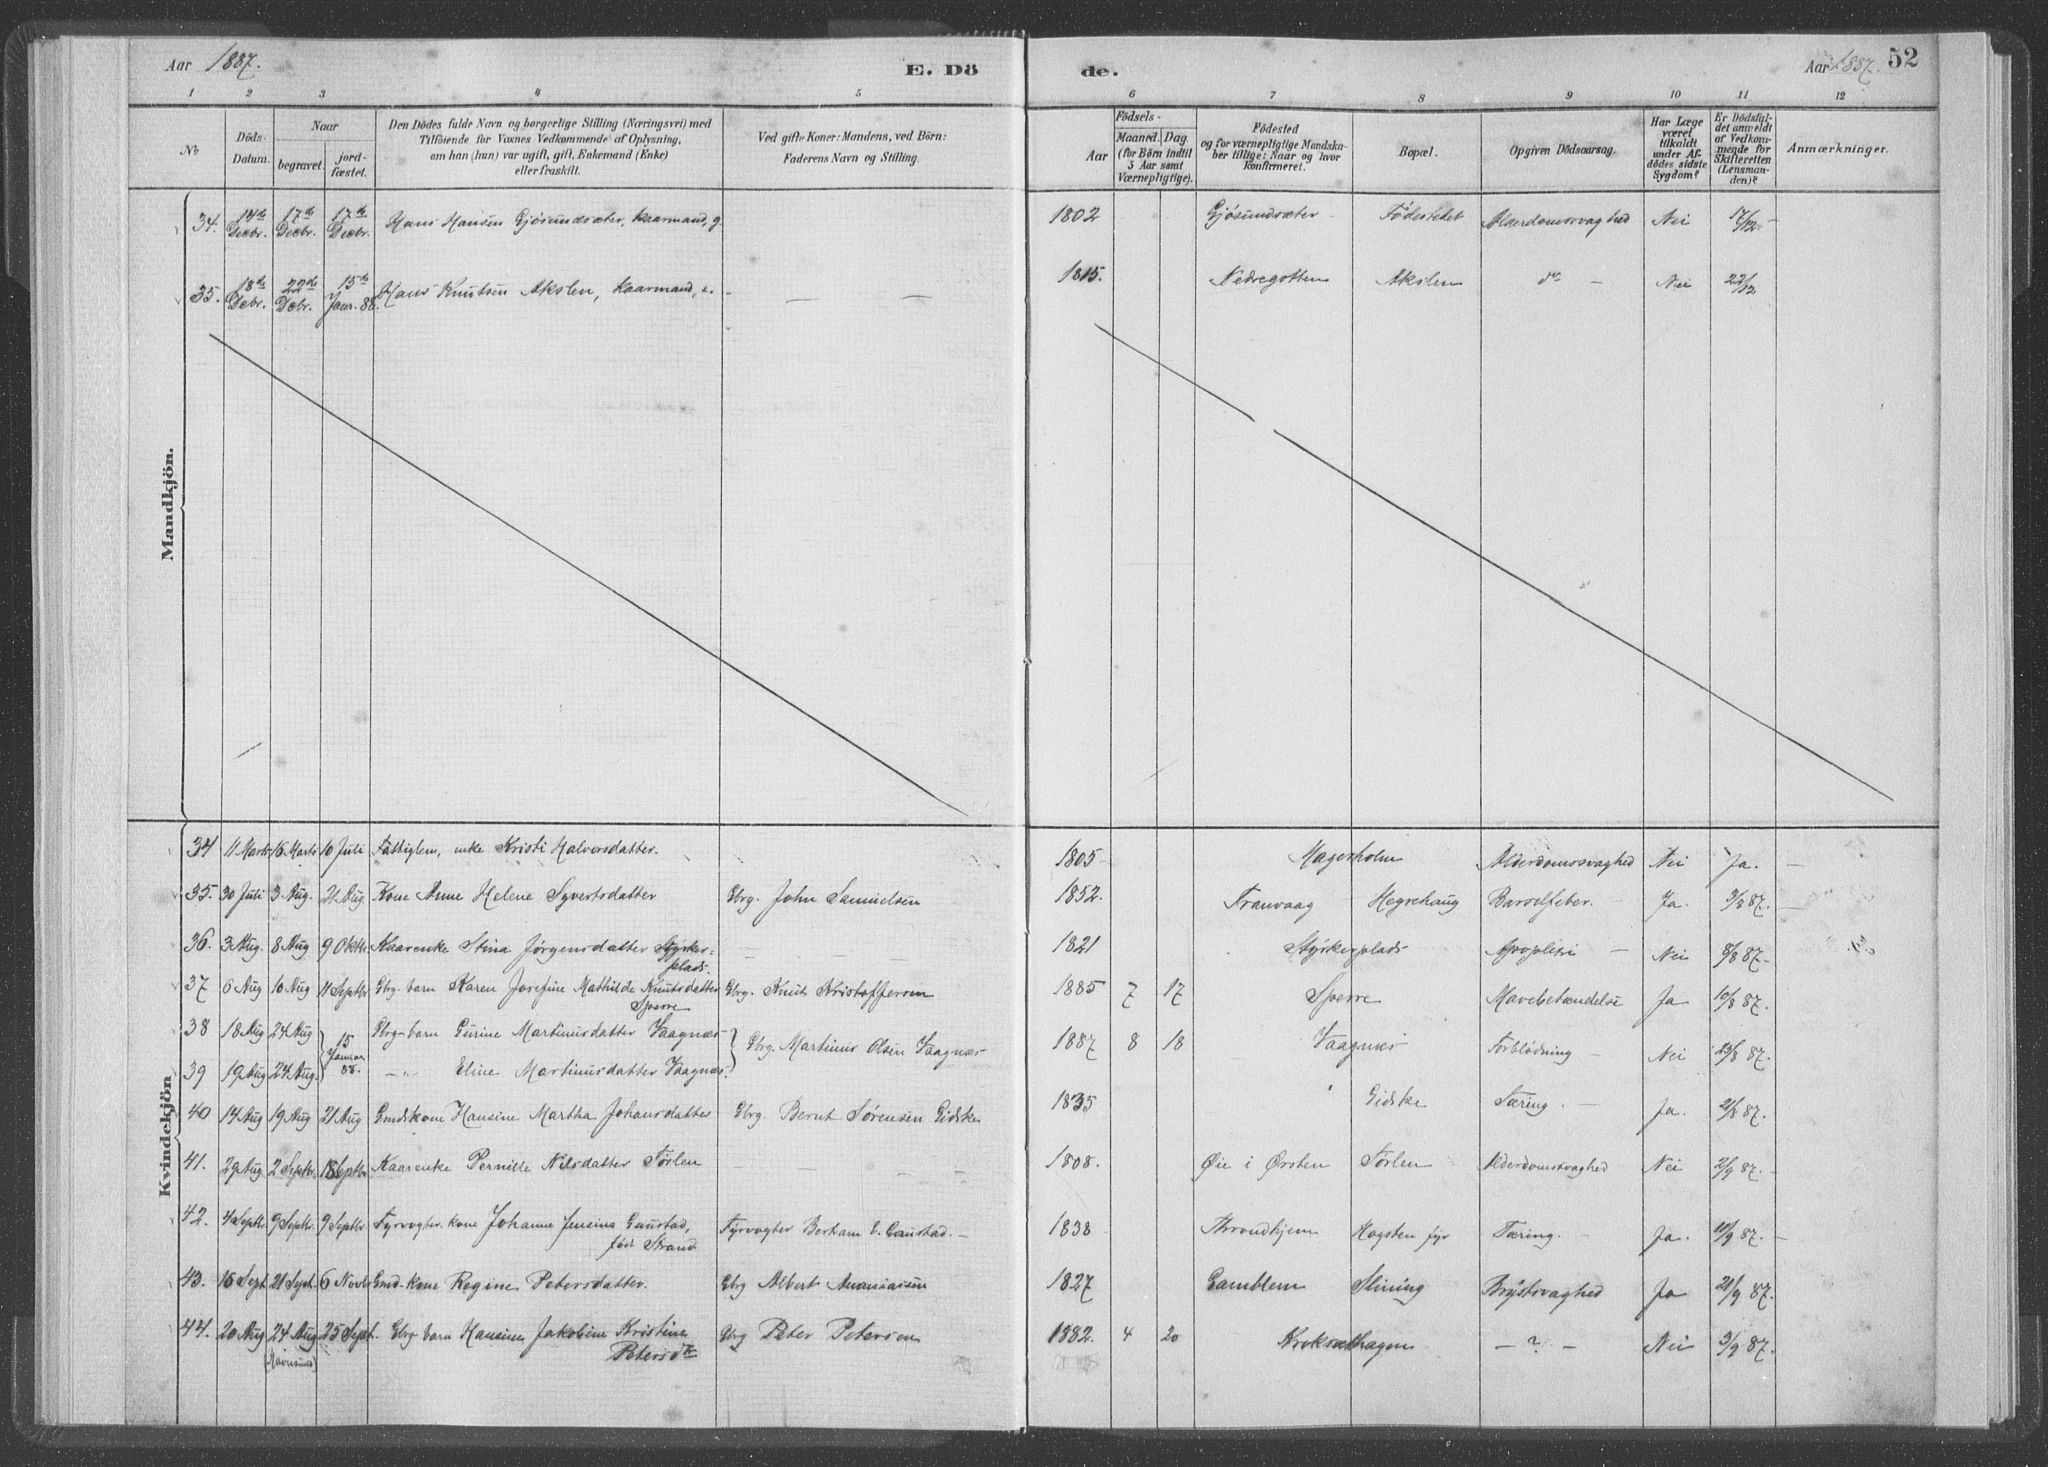 Aar 1887.
E. Dö
de.
Aar 1887.
52
1 2 3 4 5
6 7 8 9 10 11 12
No
Döds-Datum.
Naar
begravet.
jordfæstet.
Den Dödes fulde Navn og borgerlige Stilling (Næringsvei) med
Tilföiende for Voxnes Vedkommende af Oplysning,
om han (hun) var ugift, gift, Enkemand (Enke)
eller fraskilt.
Ved gifte Koner: Mandens, ved Börn:
Faderens Navn og Stilling.
Födsels-
Aar
Maaned. Dag.
(for Börn indtil
5 Aar samt
Værnepligtige).
Födested
og for værnepligtige Mandska-
ber tillige: Naar og hvor
konfirmeret.
Bopæl.
Opgiven Dödsaarsag.
Har Læge
været
tilkaldt
under Af-
dödes sidste
Sygdom?
Er Dödsfal-
det anmeldt
af Vedkom-
mende for
Skifteretten
(Lensman-
den)?
Anmærkninger.
Mandkjön.
34. 14de Decbr. 17de Decbr. 17de Decbr. Hans Hansen Gjösundsæter, Kaarmand, g. 1802 Gjösundsæter Födestedet Alderdomssvaghed Nei 17/12 -
35. 18de Debr. 22de Debr. 15de Janr. 88. Hans Knutsen Akslen, Kaarmand, - - - 1815. Nedregotten Akslen do - Nei 22/12
Kvindekjön
34 11 Marts 16 Marts 10 Juli Fattiglem, enke Kristi Halvorsdatter. 1805 Magerholm Alderdomssvaghed Nei Ja. -
35. 30 Juli 3 Aug. 21 Aug. Kone Anne Helene Syvertsdatter Gbrg. John Samuelsen 1852. Franvaag Hegrehaug Barselfeber. - Ja. 3/8 87. -
36. 3 Aug. 8 Aug 9 Oktbr. Kaarenke Stina Jørgensdatter Styrkes-
plads. - - - 1821 Styrkesplads Apoplexi - Nei 8/8 87 -
37 6 Aug 10 Aug 11 Septbr. Gbrg. barn Karen Josefine Mathilde Knutsdatter
Sperre Gbrg. Knut Kristoffersen 1885 7 17 Sperre Mavebetændelse Ja 10/8 87.
38 18 Aug 24 Aug 15 Januar 88. Gbrg-barn Gurine Martinusdatter Vaagnæs Gbrg. Martinus Olsen Vaagnæs 1887 8 18 Vaagnæs Forblödning - Nei 23/8 87.
39 19 Aug 24 Aug. -"- Eline Martinusdatter Vaagnæs.
40 14 Aug 19 Aug 21 Aug Gmdskone Hansine Martha Johansdatter Gbrg. Bernt Sørensen Gidske 1835 " Gidske Tæring. - Ja. 21/8 87.
41. 29 Aug 2 Septbr. 18 Septbr Kaarenke Pernille Nilsdatter Sörlen - - 1808. Øie i Ørsten Sörlen Alderdomssvaghed Nei 2/9 87.
42. 4 Septbr. 9 Septbr. 9 Septbr. Fyrvogter kone Johanne Jensine Gaustad,
född Strand Fyrvogter Bertram E. Gaustad. - 1838 Throndhjem Hogsten fyr Tæring. - Ja. 11/9 87.
43. 16 Sept 21 Sept. 6 Novbr Gmd-kone Regine Petersdatter. Gbrg Albert Ananiassen 1827 Gamblem Slining Brystsvaghed Ja 21/9 87.
44. 20 Aug 24 Aug 25 Sept. Gbrg barn Hansine Jakobine Kristine
Petersdtr Gbrg Peter Petersen 1882. 4 20 Kroksæthagen - ? - Nei 3/9 87.